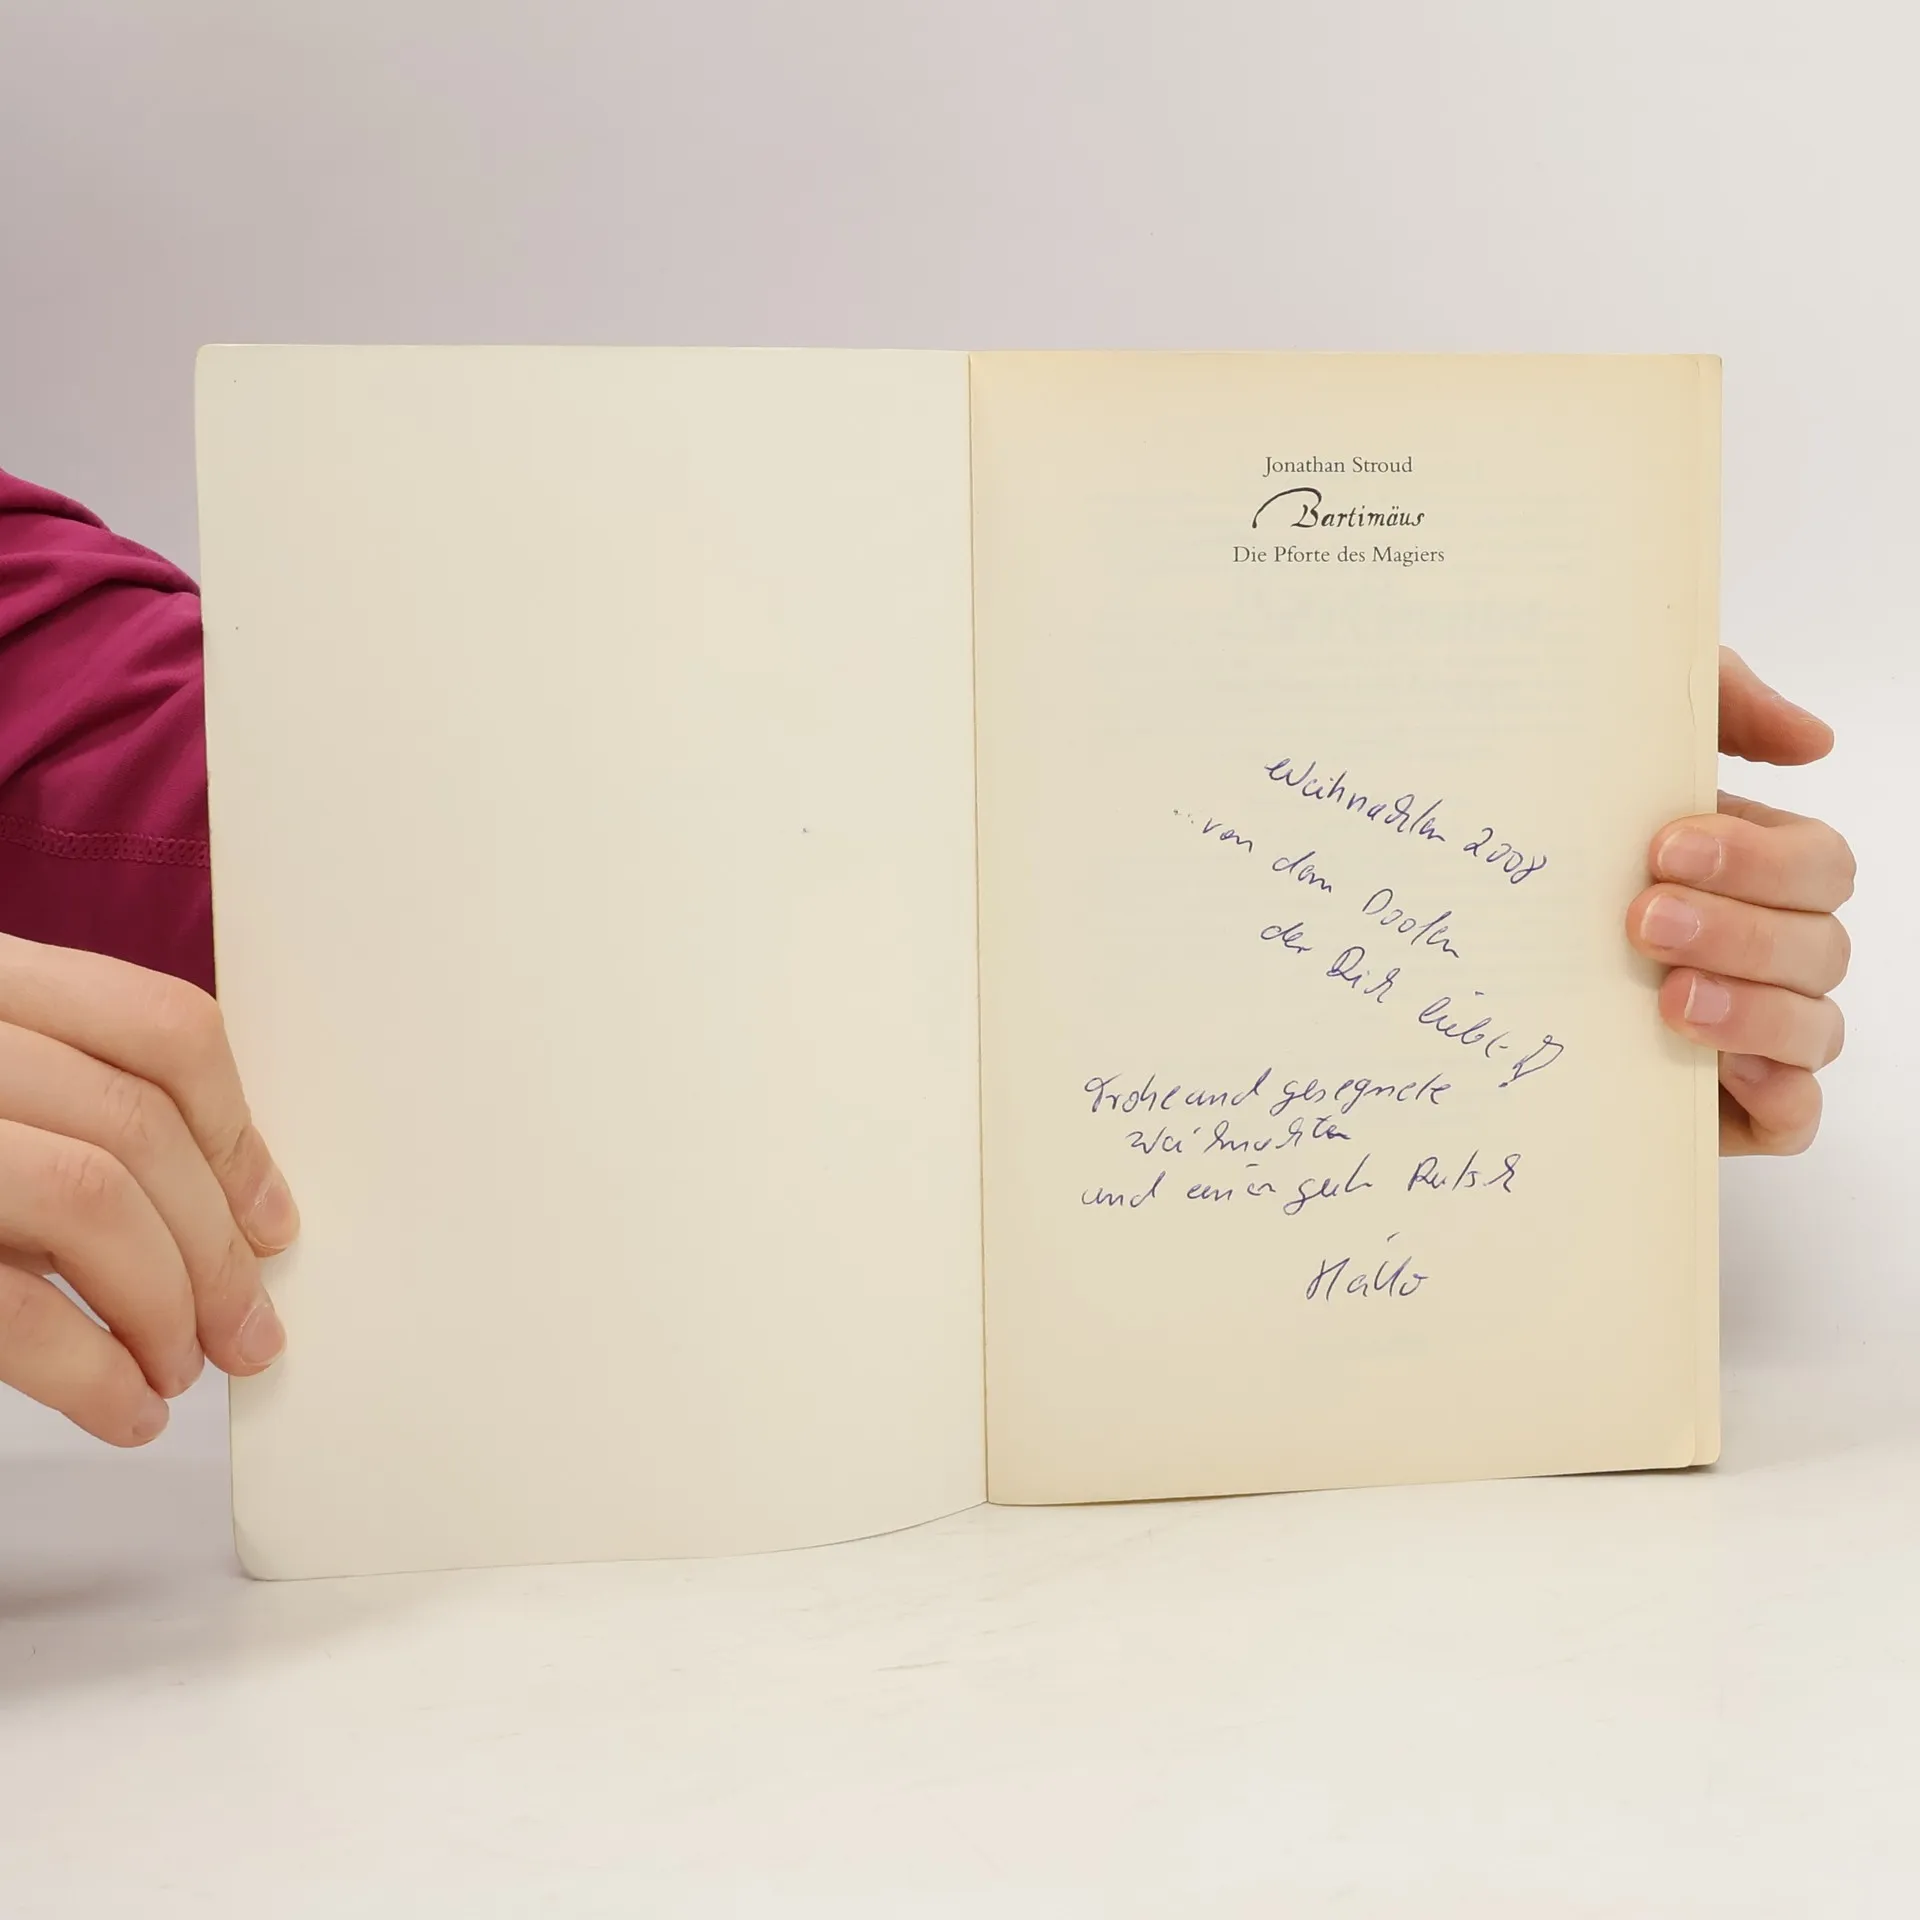 Jonathan Stroud
Bartimäus
Die Pforte des Magiers
Weihnachten 2008
...von dem
der Dich liebt
Frohe und gesegnete
Weihnachten
und einen guten Rutsch